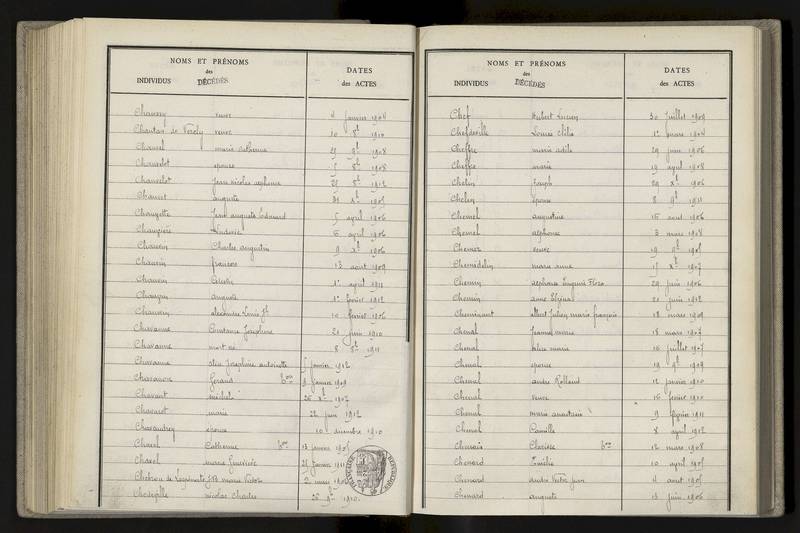 NOMS ET PRÉNOMS
des
INDIVIDUS DÉCÉDÉS
DATES
des ACTES
Chauvery veuve 4 janvier 1904
Chautan de Vercly veuve 10 8b 1910
Chauvel marie catherine 29 9b 1908
Chauvelot épouse 5 8b 1908
Chauvelot Jean nicolas alphonse 25 8b 1912
Chauvet auguste 31 Xb 1905
Jean auguste Edouard 5 avril 1906
Ludovic 6 avril 1906
Chauvin Charles augustin 9 Xb 1906
Chauvin françois 13 aout 1909
Chauvin Célestin 1r avril 1911
Chauvin 1r février 1912
Chauvin alexandre Louis 10 février 1906
Chavanne Constance Joséphine 21 juin 1910
Chavanne mort né 8 8b 1911
Chavanne Joséphine antoinette 5 janvier 1912
Chavanon Geraud 9 janvier 1909
Chavant michel 26 Xb 1907
Chavarot marie 22 juin 1912
Chavaudrey épouse 10 décembre 1910
Chazal Catherine 13 janvier 1905
Chazel marie Geneviève 21 janvier 1911
marie Victor 2 mars 1906
nicolas Charles 26 9b 1910
NOMS ET PRÉNOMS
des
INDIVIDUS DÉCÉDÉS
DATES
des ACTES
Chef Hubert Lucien 30 Juillet 1909
Chefdeville Louise Célie 1r mars 1904
Cheffre marie adèle 29 juin 1906
Cheffre marie 19 avril 1908
Chelin Joseph 29 Xb 1906
Chelin épouse 8 9b 1911
Chemel augustine 16 aout 1906
Chemel alphonse 3 mars 1908
Chemier veuve 19 9b 1905
Chemidelin marie anne 15 Xb 1907
Chemin alphonse Eugène Flore 29 juin 1906
Chemin anne 21 juin 1912
Cheminant albert Julien marie françois 18 mars 1909
Chenal Jeanne marie 18 mars 1907
Chenal marie 16 juillet 1907
Chenal épouse 19 9b 1909
Chenal andre Rolland 12 janvier 1910
Chenal veuve 16 février 1910
Chenal marie anastasie 9 février 1911
Chenal Camille 8 avril 1912
Chenais Clarisse 12 mars 1908
Chenard Emélie 10 avril 1905
Chenard andre Victor jean 4 aout 1905
Chenard auguste 13 juin 1906